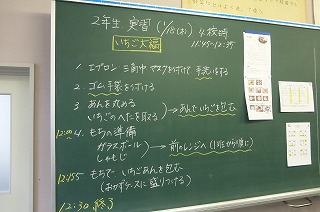 2年生 実習 (1/15(木)) 4校時
11:45~12:35
いちご大福
1. エプロン 三角巾 マスクをつけて 手洗いをする
2. ゴム手袋をつける
3. あんを丸める
いちごのへたを取る → あんでいちごを包む
12:00 4. もちの準備
ガラスボール
しゃもじ → 前のレンジへ(1班から順に)
12:15 5. もちで いちごあんを包む
(おかずケースに盛りつける)
12:30 終了